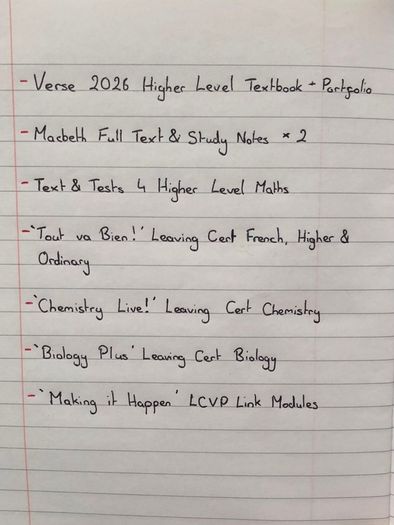 - Verse 2026 Higher Level Textbook + Portfolio
- Macbeth Full Text & Study Notes * 2
- Text & Tests 4 Higher Level Maths
- 'Tout va Bien!' Leaving Cert French, Higher &
Ordinary
- 'Chemistry Live!' Leaving Cert Chemistry
- 'Biology Plus' Leaving Cert Biology
- 'Making it Happen' LCVP Link Modules